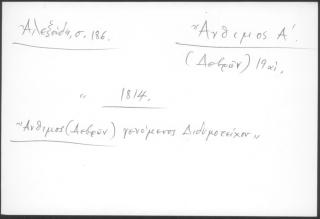 Ἀλεξούδη, σ. 186.
"Ἄνθιμος Α΄.
(Δεβρῶν) 19 αἰ.
" 1814.
"Ἄνθιμος (Δεβρῶν) γενόμενος Διδυμοτείχου"